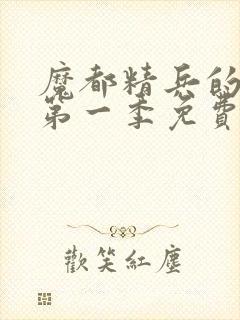 魔都精兵的
第一季免費
歡笑紅塵